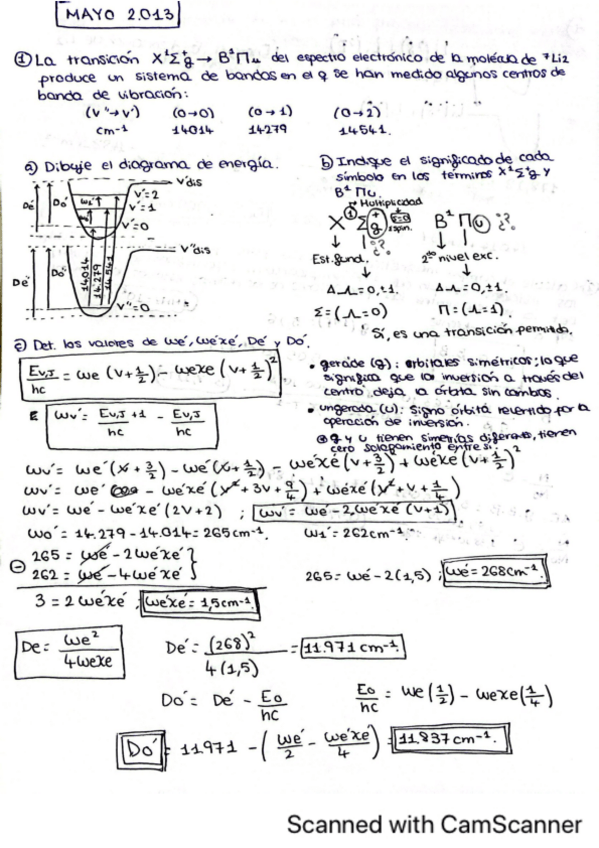 MAYO 2.013
① La transición X¹Σ⁺g → B¹Πu del espectro electrónico de la molécula de ⁷Li2
produce un sistema de bandas en el q se han medido algunos centros de
banda de vibración:
(v''→v') (0→0) (0→1) (0→2)
cm⁻¹ 14014 14279 14541.
a) Dibuje el diagrama de energía.
V'dis
De' Do' we' v'=2
v'=1
v'=0
V'dis
De' Do' 14.014 14.279 14.541
v''=0
b) Indique el significado de cada
símbolo en los términos X¹Σ⁺g y
B¹Πu.
Multiplicidad
X¹Σ⁺g B¹Πu ¿?
spin.
¿?
Est.fund. 2do nivel exc.
ΔΛ=0,±1 ΔΛ=0,±1.
Σ=(Λ=0) Π=(Λ=1).
Sí, es una transición permitida.
c) Det. los valores de we', we'xe', De' y Do'.
Ev,J/hc = we(v+1/2) - wexe(v+1/2)²
wv' = Ev,J+1/hc - Ev,J/hc
• gerade (g): orbitales simétricos; lo que
significa que la inversión a través del
centro deja la órbita sin cambos.
• ungerada (u): Signo órbita revertido por la
operación de inversión.
g y u tienen simetrías diferens, tienen
cero solapamiento entre si.
wv' = we'(v+3/2) - we'(v+1/2) - we'xe'(v+3/2) + we'xe(v+1/2)²
wv' = we' - we'xe'(v²+3v+9/4) + we'xe'(v²+v+1/4)
wv' = we' - we'xe'(2v+2) ; wv' = we' - 2we'xe'(v+1).
wo' = 14.279 - 14.014 = 265cm⁻¹. w1' = 262cm⁻¹.
265 = we' - 2we'xe'
⊖ 262 = we' - 4we'xe'
3 = 2we'xe' ; we'xe' = 1,5cm⁻¹.
265 = we' - 2(1,5) ; we' = 268cm⁻¹.
De = we²/4wexe De' = (268)²/4(1,5) = 11.971 cm⁻¹.
Do' = De' - Eo/hc Eo/hc = we(1/2) - wexe(1/4)
Do' = 11971 - (we'/2 - we'xe'/4) = 11.837cm⁻¹.
Scanned with CamScanner